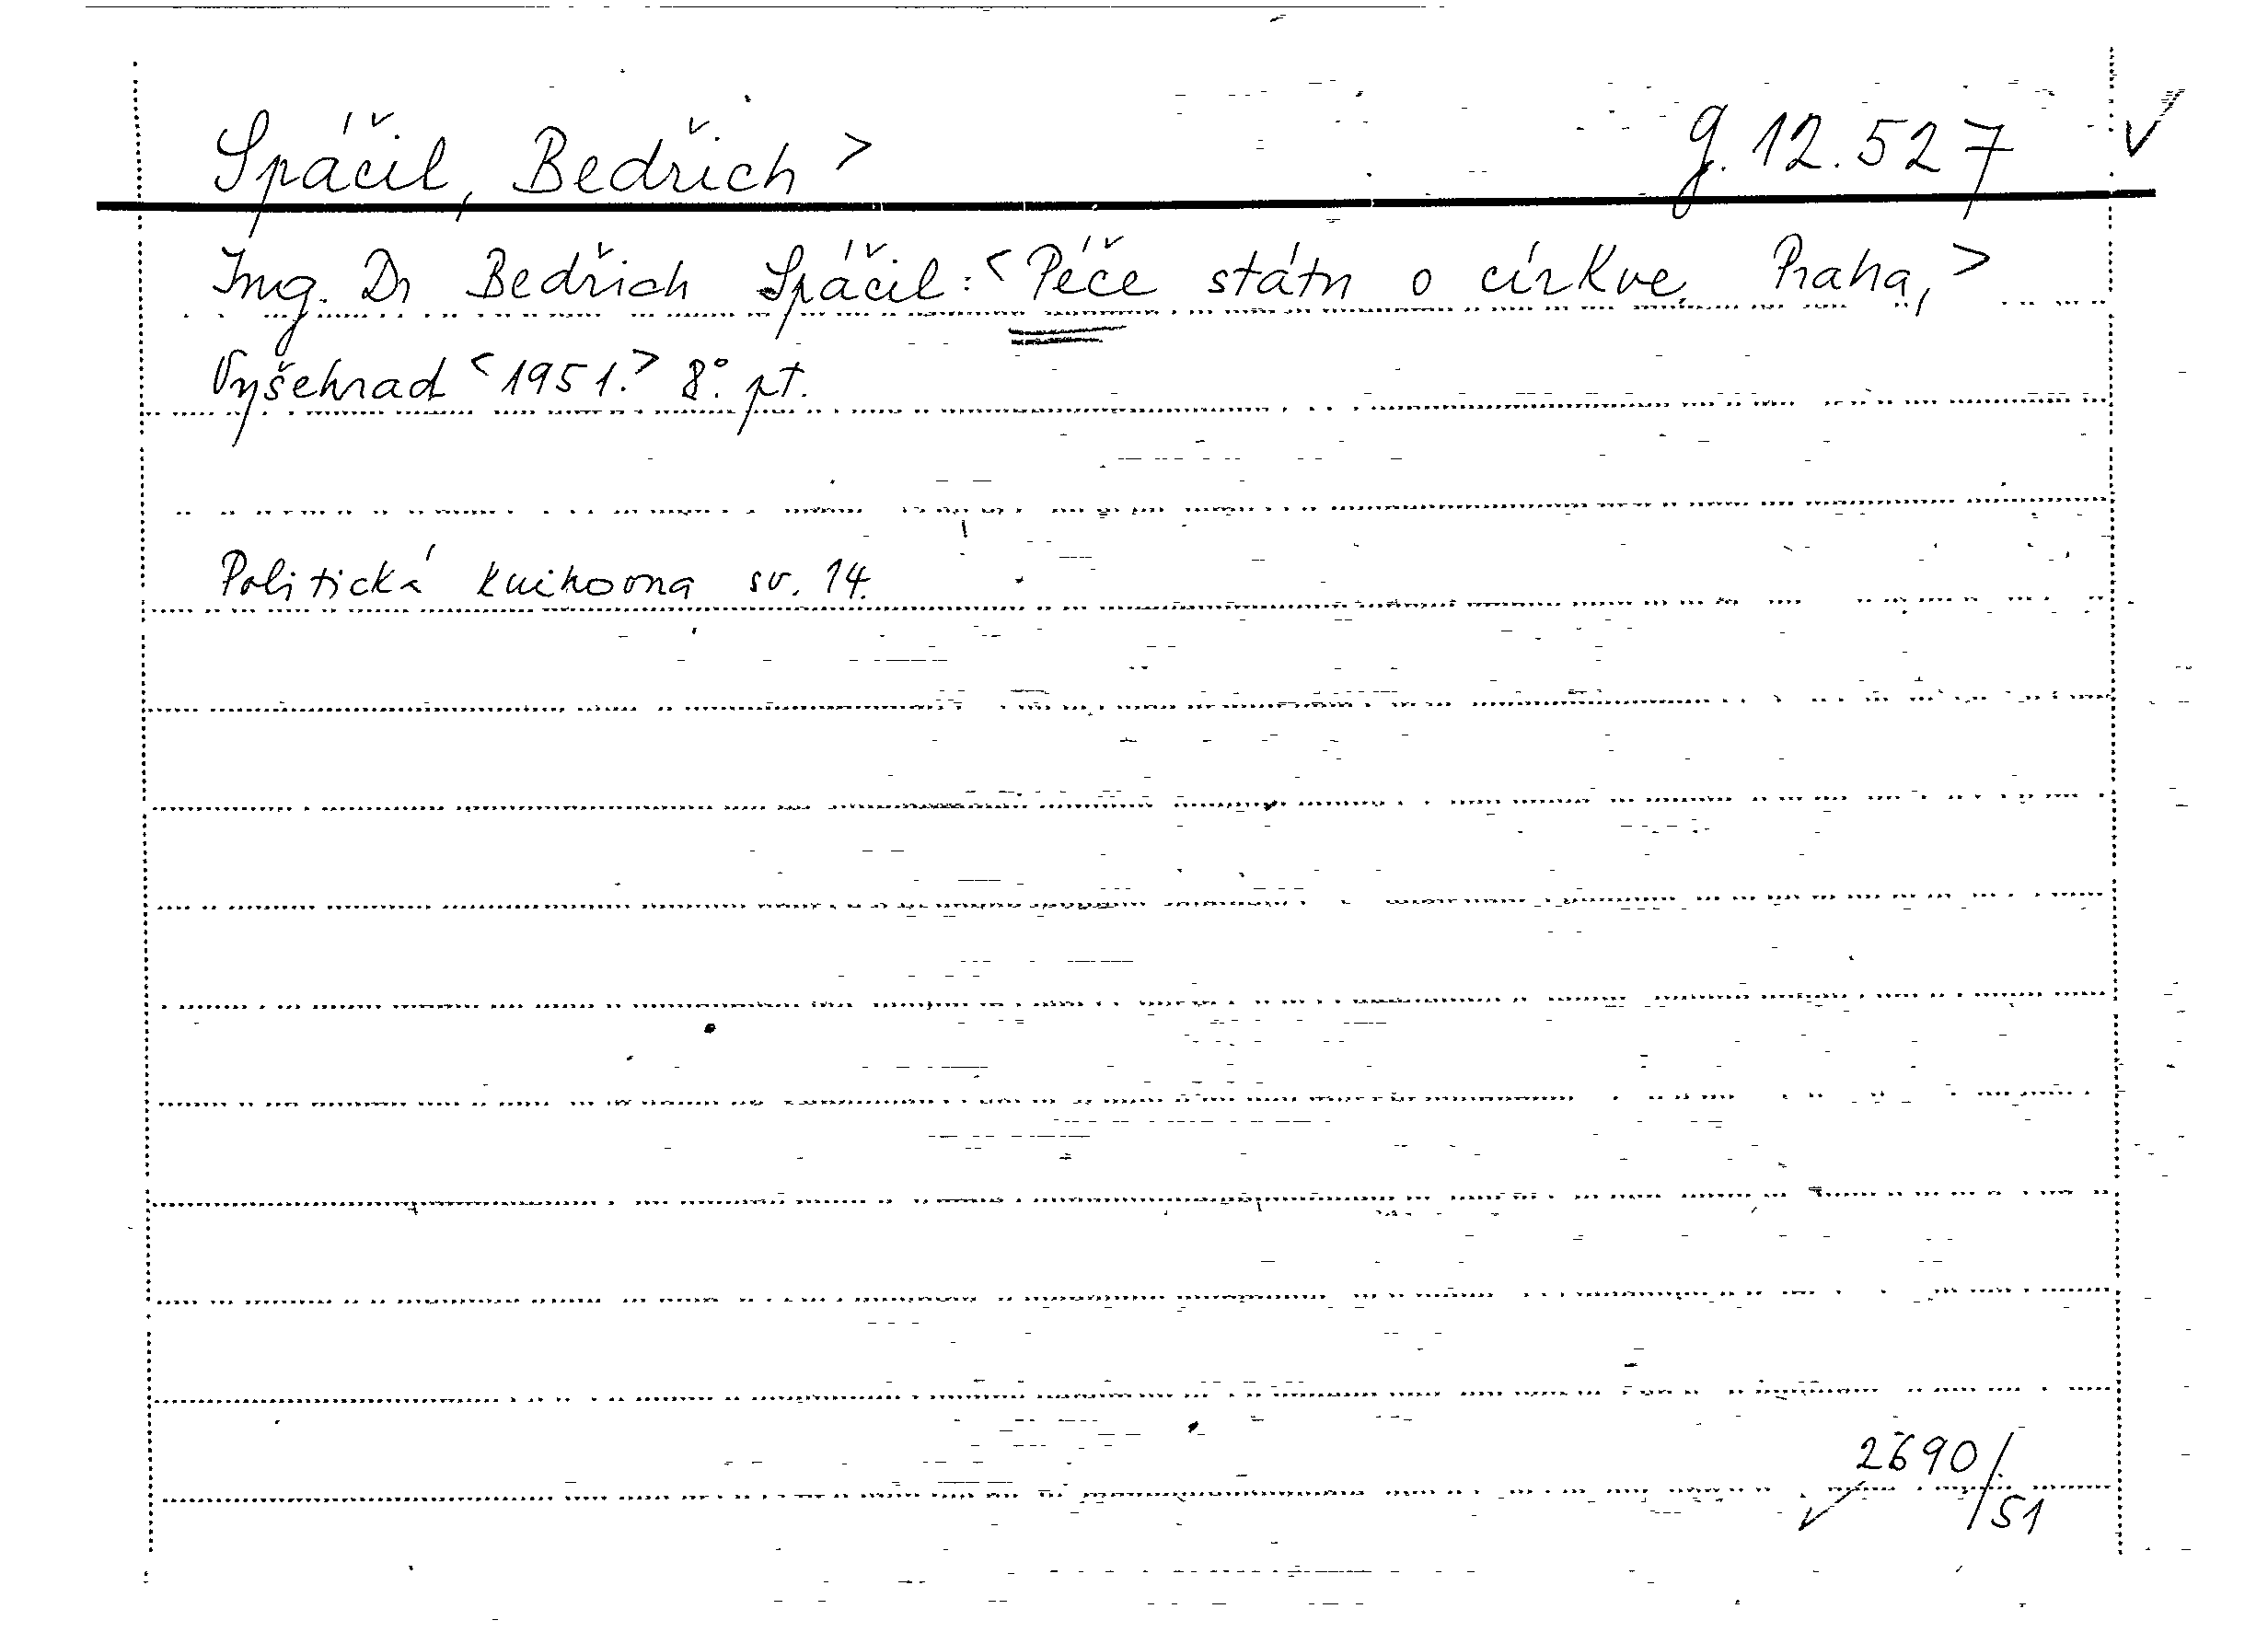 Spáčil, Bedřich > g. 12.527 ✓
Ing. Dr Bedřich Spáčil: <Péče státu o církve. Praha,>
Vyšehrad <1951.> 8°. pt.
Politická knihovna sv. 14.
2690/51